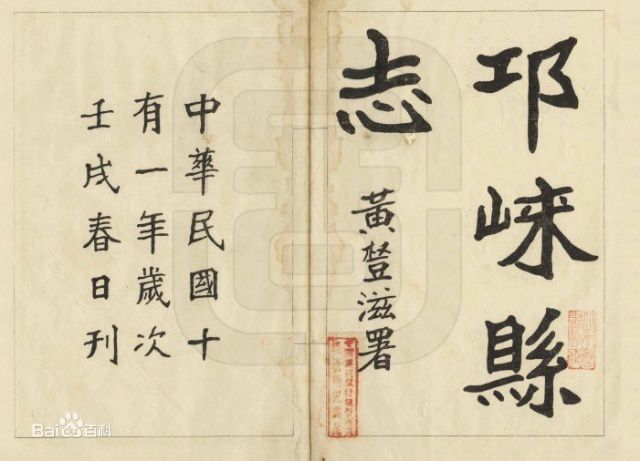 邛崍縣
志
黃登滋署
中華民國十
有一年歲次
壬戌春日刊
Bai百科